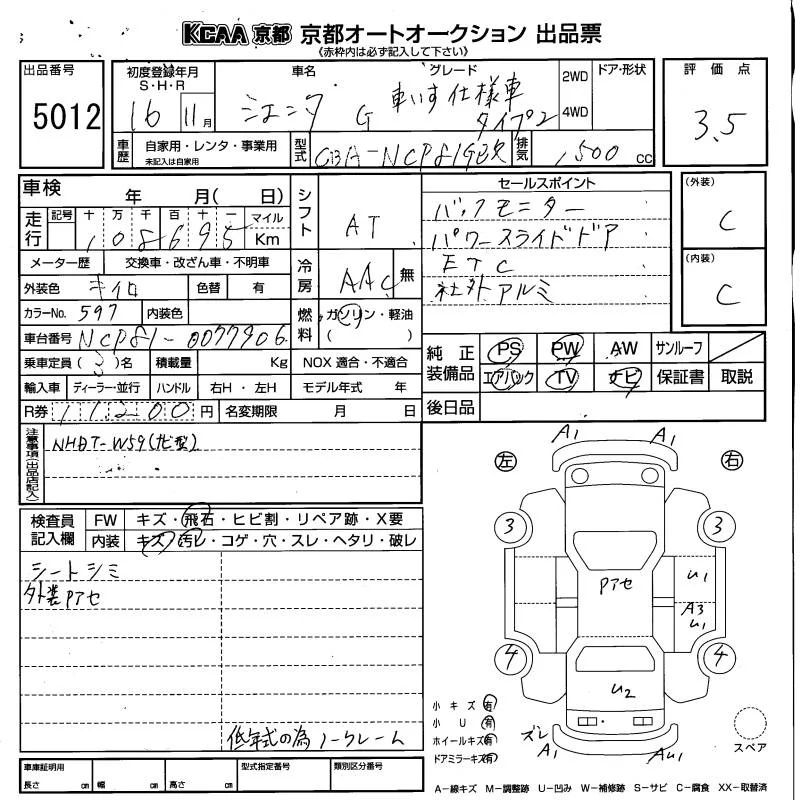 KCAA 京都 京都オートオークション 出品票
《赤枠内は必ず記入して下さい》
出品番号
5012
初度登録年月
S・H・R
16 11月
車名
シエンタ
グレード
G 車いす仕様車
タイプ2
2WD
4WD
ドア・形状
評価点
3.5
車歴
自家用・レンタ・事業用
未記入は自家用
型式
CBA-NCP81G
排気
1,500 cc
車検 年 月( 日)
走行
記号 十 万 千 百 十 一 マイル
108695 Km
メーター歴 交換車・改ざん車・不明車
外装色 キイロ 色替 有
カラーNo. 597 内装色
車台番号 NCP81-0077906
乗車定員 (3)名 積載量 Kg
輸入車 ディーラー・並行 ハンドル 右H・左H
R券 11200 円 名変期限 月 日
シフト AT
冷房 AAC 無
燃料 ガソリン・軽油
( )
NOX 適合・不適合
モデル年式 年
セールスポイント
バックモニター
パワースライドドア
ETC
社外アルミ
(外装)
C
(内装)
C
純正装備品
PS PW AW サンルーフ
エアバック TV ナビ 保証書 取説
後日品
注意事項(出品店記入)
NHDT-W59(ナビ型)
検査員記入欄
FW キズ・飛石・ヒビ割・リペア跡・X要
内装 キズ・汚レ・コゲ・穴・スレ・ヘタリ・破レ
シートシミ
外装Pアセ
低年式の為ノークレーム
左 右
A1 A1
3 3
Pアセ
U1
A3
U1
4 4
U2
小キズ 有
小U 有
ホイールキズ 有
ドアミラーキズ 有
ズレ
A1
AU1
スペア
車庫証明用
長さ cm 幅 cm 高さ cm
型式指定番号
類別区分番号
A−線キズ M−調整跡 U−凹み W−補修跡 S−サビ C−腐食 XX−取替済